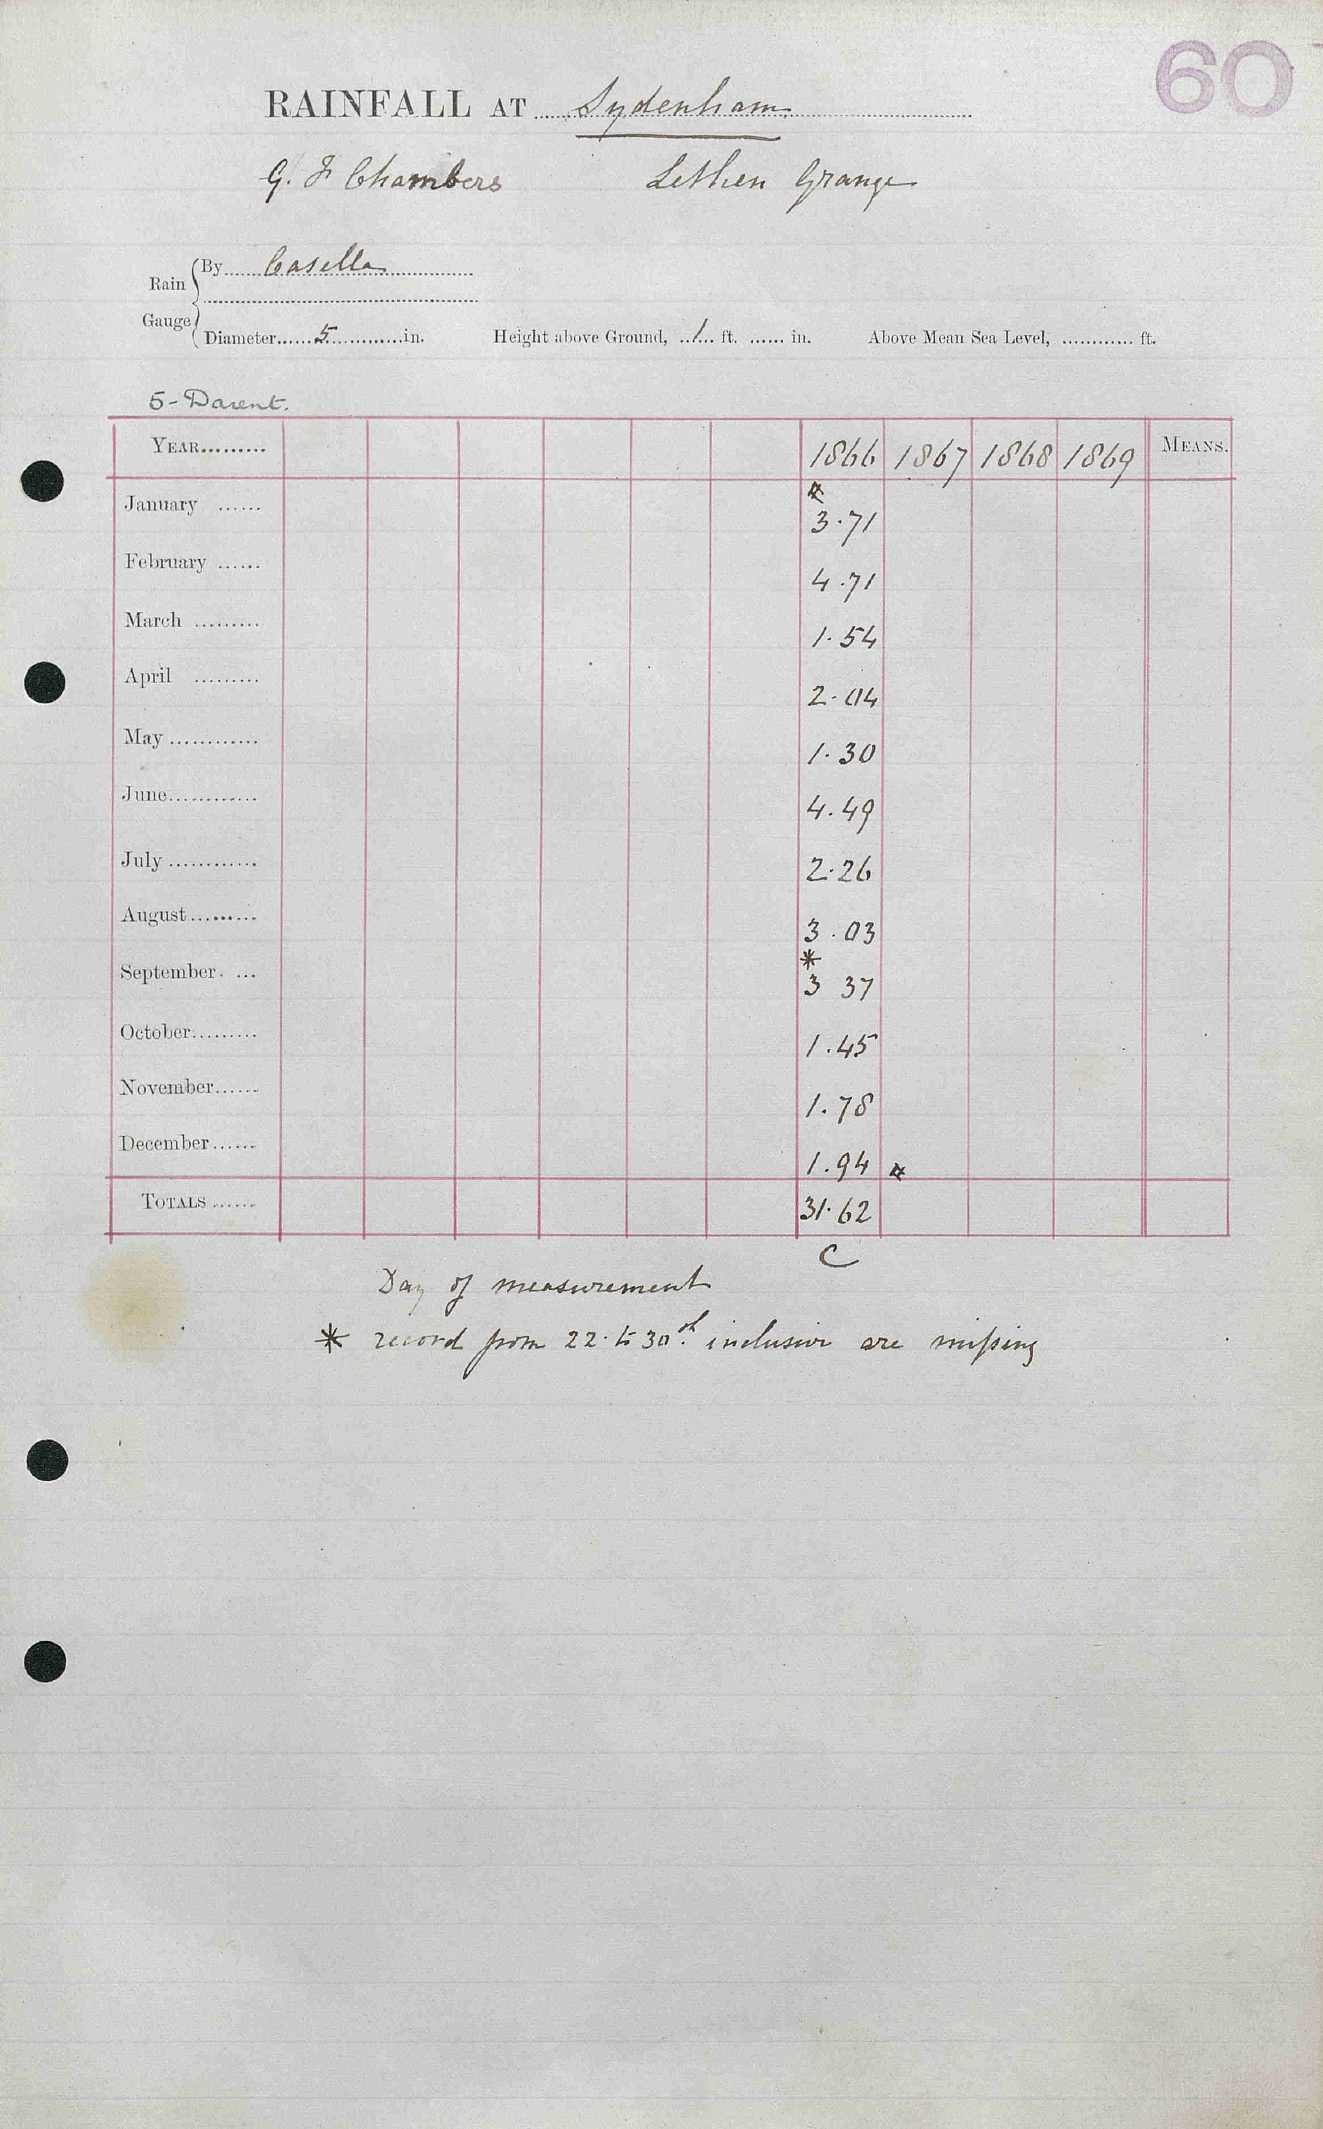 60
RAINFALL AT Sydenham
G. F Chambers Lethen Grange
Rain Gauge
By Casella
Diameter......5............in. Height above Ground, ..1... ft. ...... in. Above Mean Sea Level, ............ ft.
5-Darent.
YEAR......... 1866 1867 1868 1869 MEANS.
January ...... * 3.71
February ...... 4.71
March ......... 1.54
April ......... 2.04
May ............ 1.30
June............ 4.49
July ............ 2.26
August......... 3.03
September. ... * 3 37
October......... 1.45
November...... 1.78
December...... 1.94 *
TOTALS ...... 31.62
C
Day of measurement
* record from 22. to 30th. inclusive are missing